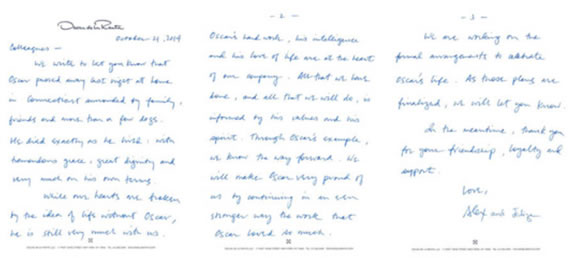 Oscar de la Renta
October 21, 2014
Colleagues —
We write to let you know that
Oscar passed away last night at home
in Connecticut surrounded by family,
friends and more than a few dogs.
He died exactly as he lived: with
tremendous grace, great dignity and
very much on his own terms.
While our hearts are broken
by the idea of life without Oscar,
he is still very much with us.
- 2 -
Oscar's hard work, his intelligence
and his love of life are at the heart
of our company. All that we have
done, and all that we will do, is
informed by his values and his
spirit. Through Oscar's example,
we know the way forward. We
will make Oscar very proud of
us by continuing in an even
stronger way the work that
Oscar loved so much.
- 3 -
We are working on the
formal arrangements to celebrate
Oscar's life. As these plans are
finalized, we will let you know.
In the meantime, thank you
for your friendship, loyalty and
support.
Love,
Alex and Eliza